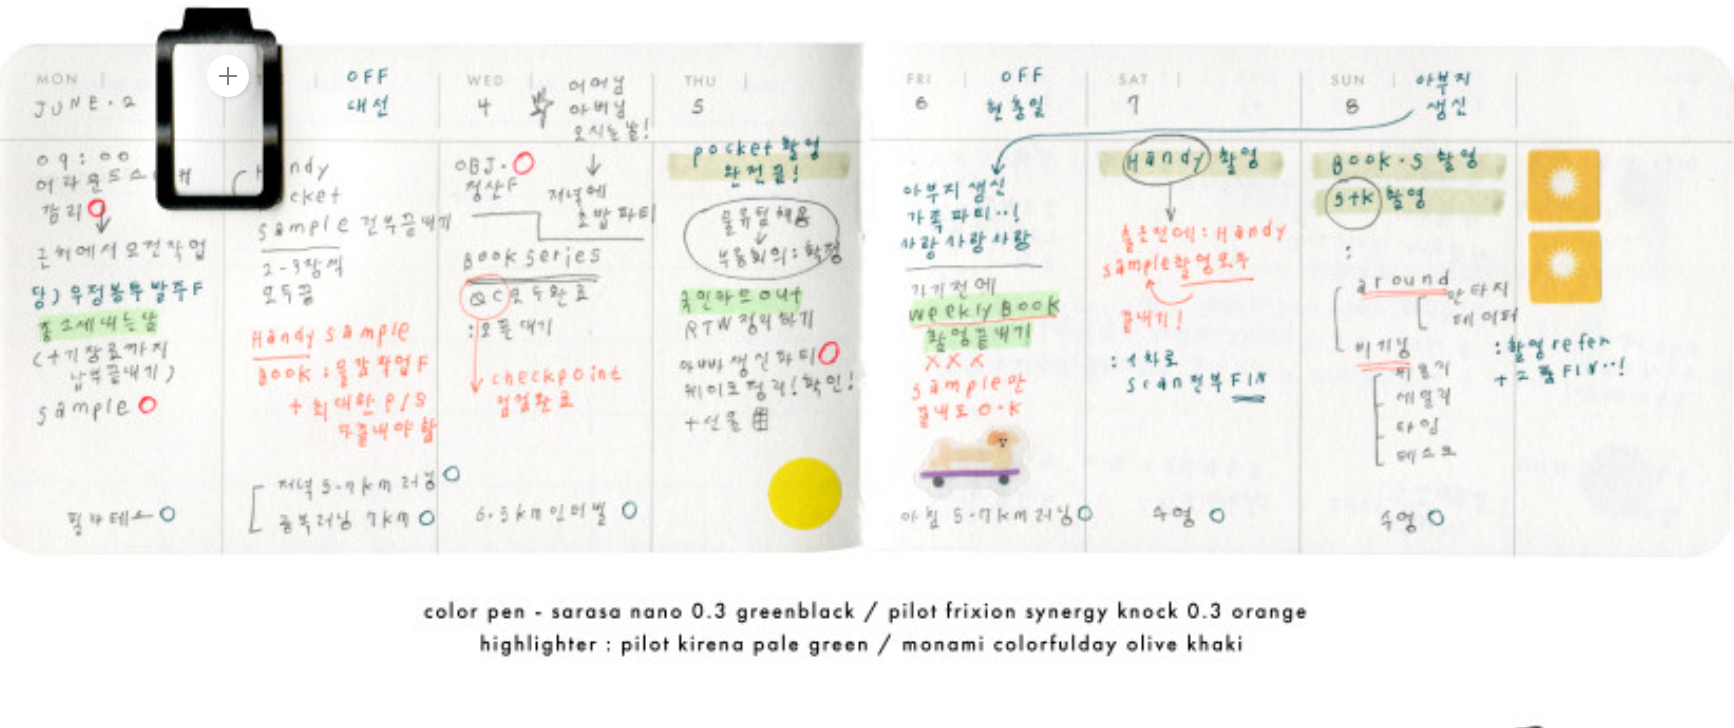 MON
JUNE. 2
09:00
어라운드스
감리
근처에서 오전작업
당) 우정봉투 발주F
종소세 내는날
(+기장료까지
납부끝내기)
sample
필라테스
OFF
대선
Handy
cket
sample 전부끝내기
2-3장씩
모두끝
Handy sample
BOOK : 물감작업 F
+ 최대한 P/S
다끝내야 함
저녁 5-7km 러닝
공복러닝 7km
WED
4
어머님
아버님
오시는날!
OBJ.
정산F
저녁에
초밥파티
Book series
QC 모두완료
:오픈대기
checkpoint
컴펌완료
6.5km 인터벌
THU
5
pocket 촬영
완전끝!
물류팀 채용
부동회의 : 확정
국민카드 out
RTW 정리하기
아빠생신파티
케이크 픽업! 확인!
+선물
FRI
6
OFF
현충일
아부지 생신
가족 파티..!
사랑 사랑 사랑
가기전에
weekly BOOK
촬영끝내기
XXX
sample만
끝내도 O.K
아침 5-7km 러닝
SAT
7
Handy 촬영
출근전에 : Handy
sample촬영모두
끝내기!
: 1차로
scan 전부 FIN
수영
SUN
8
아부지
생신
BOOK.S 촬영
stk 촬영
:
around
판타지
데이터
비기닝
위클리
데일리
타임
테스크
: 촬영 refer
+소품 FIN..!
수영
color pen - sarasa nano 0.3 greenblack / pilot frixion synergy knock 0.3 orange
highlighter : pilot kirena pale green / monami colorfulday olive khaki